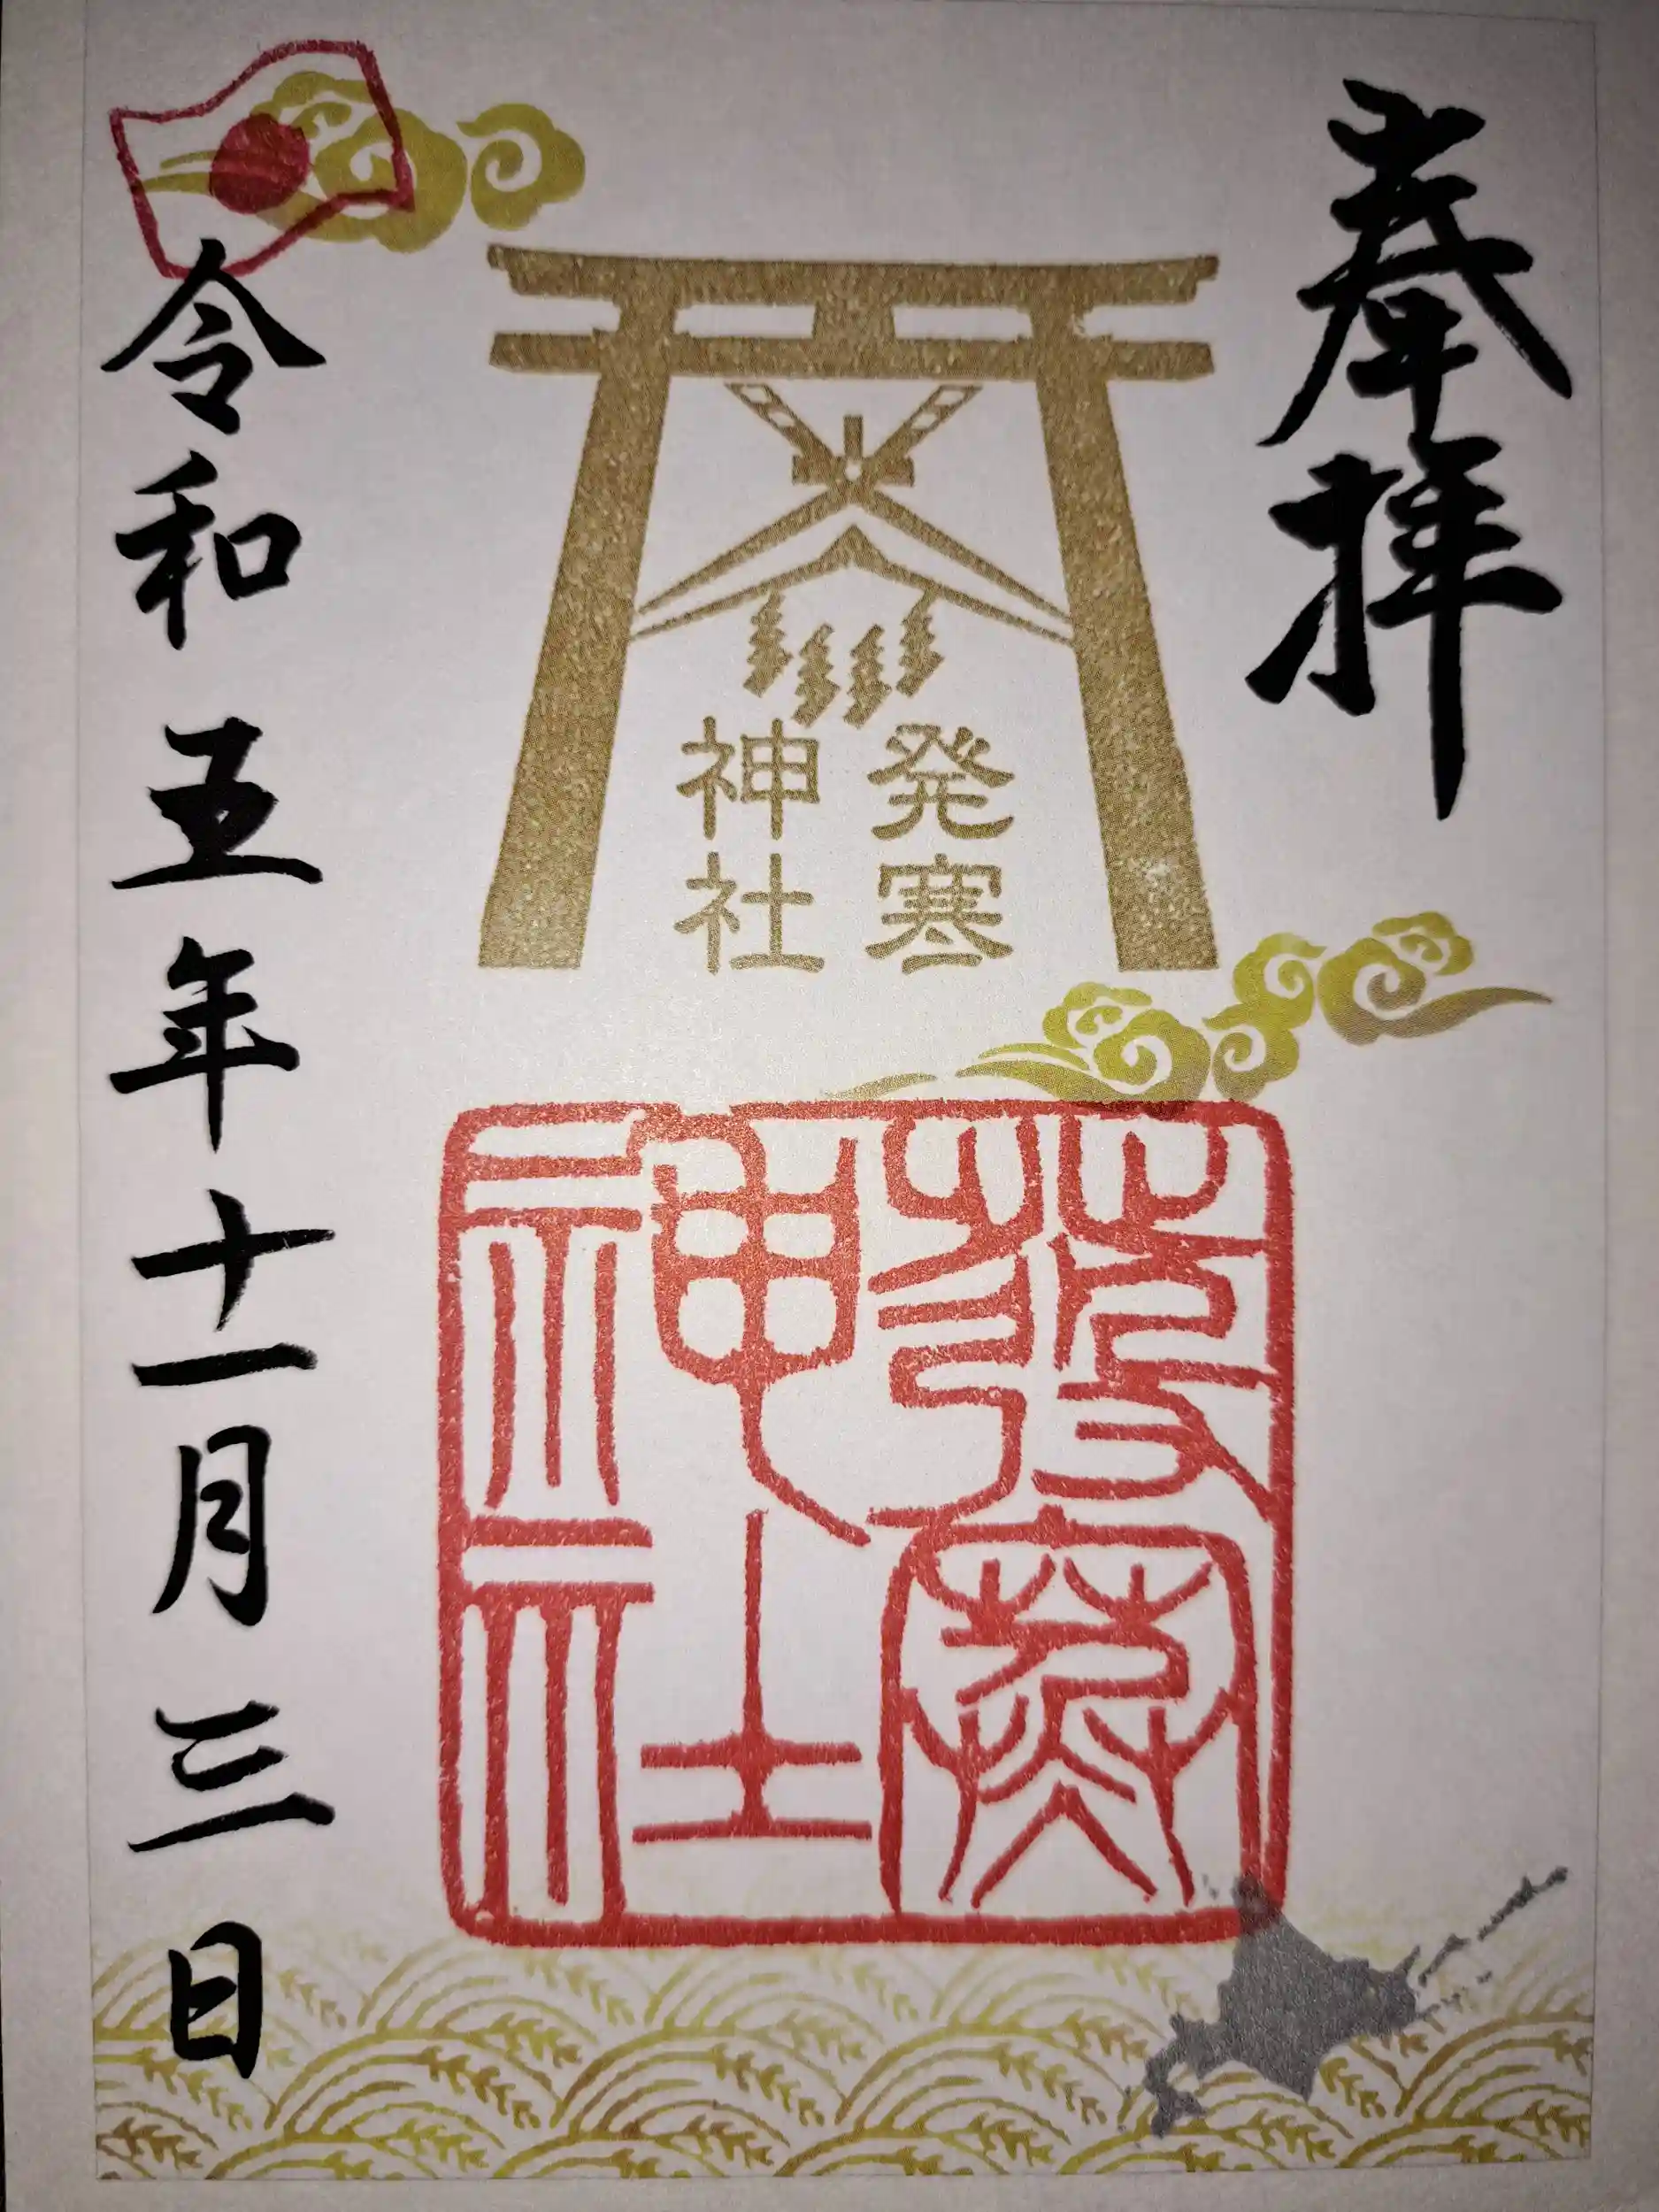 奉拝
発寒
神社
發寒
神社
令和五年十一月三日